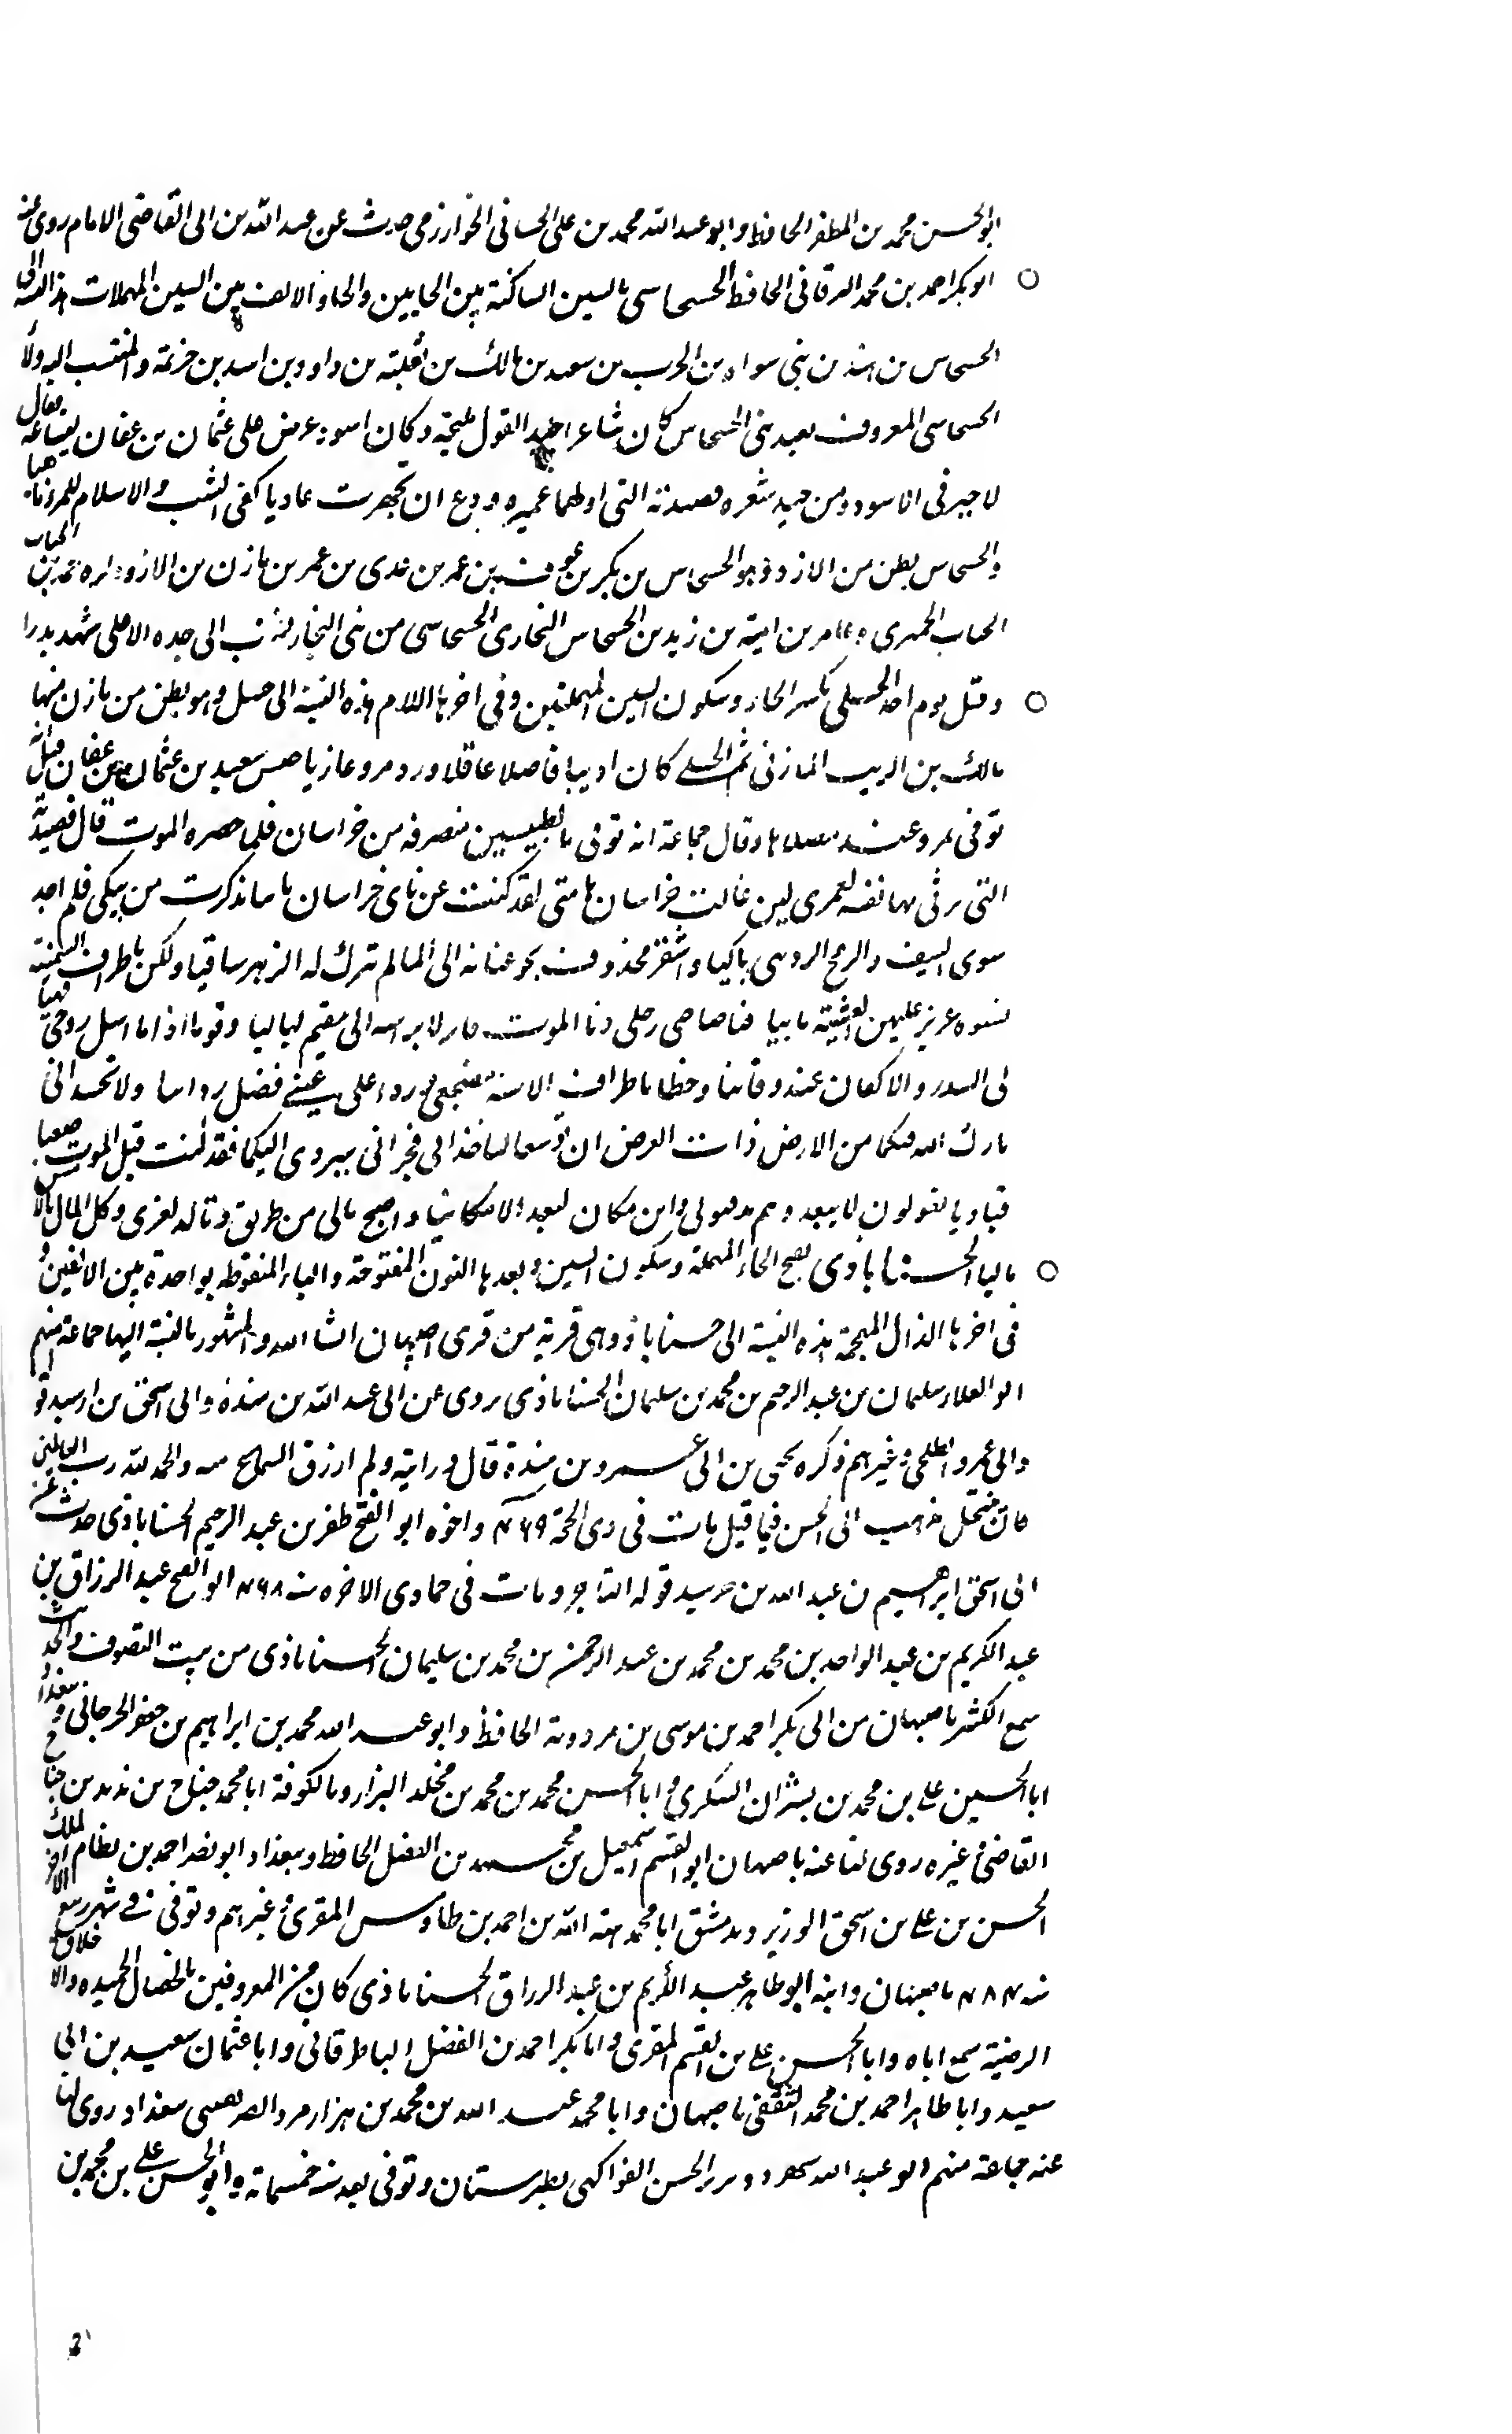 ابو الحسن محمد بن المظفر الحافظ و ابو عبد الله محمد بن على الحسانى الخوارزمى حدث عن عبد الله بن ابى القاضى الامام روى عنه
ابو بكر احمد بن محمد البرقانى الحافظ الحسحاسى بالسين الساكنة بين الحايين والحاء والالف بين السين المهملات هذه النسبة الى
الحسحاس بن هند من بنى سواه بن الحرب بن سعيد بن مالك بن ثعلبة بن داود بن اسد بن خزيمة والمنتسب اليه ولاً
الحسحاسى المعروف بعبد بنى الحسحاس كان شاعرا جيد القول مليحه وكان اسود عرض على عثمان بن عفان ليبتاعه فقال
لا خير فى الاسود ومن جيد شعره قصيدته التى اولها عميره ودع ان تجهزت غاديا كفى الشيب والاسلام للمرء ناهيا
والحسحاس بطن من الازد وهو الحسحاس بن بكر بن عوف بن عمر بن عدى بن عمر بن مازن من الازد محمد بن الحباب
الحباب الحميرى وعامر بن امية بن زيد بن الحسحاس النجارى الحسحاسى من بنى النجار نسب الى جده الاعلى شهد بدرا
وقتل يوم احد الحسلى بكسر الحاء وسكون السين المهملتين وفى اخرها اللام هذه النسبة الى حسل وهو بطن من مازن منها
مالك بن الريب المازنى ثم الحسلى كان اديبا فاضلا عاقلا ورد مرو غازيا سعيد بن عثمان بن عفان قيل انه
توفى بمرو وعند وقال جماعة انه توفى بالطبسين منصرفه من خراسان فلما حضره الموت قال قصيدته
التى يرثى بها نفسه لعمرى لين غالت خراسان هامتى لقد كنت عن بابى خراسان نائيا تذكرت من يبكى فلم اجد
سوى السيف والرمح الردينى باكيا واشقر محذوف يجر عنانه الى الما لم يترك له الزهر ساقيا ولكن باطراف السمينة
نسوه عزيز عليهن العشية ما بيا فيا صاحبى رحلى دنا الموت فانزلا برابيه انى مقيم لياليا وقوما اذا ما استل روحى فهيا
لى السدر والاكفان عند وفاتنا وخطا باطراف الاسنه مضجعى وردا على عينى فضل ردائيا ولا تحسدانى
بارك الله فيكما من الارض ذات العرض ان توسعا ليا خذانى فجرانى ببردى اليكما فقد كنت قبل الموت صعبا
قياديا يقولون لا تبعد وهم يدفنونى واين مكان البعد الا مكانيا واصبح مالى من طريق وتالد لغيرى وكل المال بالامس
ماليا الحسنابادى بفتح الحاء المهملة وسكون السين وبعدها النون المفتوحة والباء المنقوطه بواحدة بين الالفين و
فى اخرها الذال المعجمة هذه النسبة الى حسناباذ وهى قرية من قرى اصبهان انشا الله والمشهور بالنسبة اليها جماعة منهم
ابو العلاء سليمان بن عبد الرحيم بن محمد بن سليمان الحسناباذى يروى عن ابى عبد الله بن منده وابى اسحق بن خرسيد قو له
وابى عمرو الطلحى وغيرهم ذكره يحيى بن ابى عمرو بن مندة قال ورايته ولم ارزق السماع منه والحمد لله رب العالمين
كان ينتحل مذهب ابى الحسن فيما قيل مات فى ذى الحجة ٤٦٩ واخوه ابو الفتح ظفر بن عبد الرحيم الحسناباذى حدث عن
ابى اسحق ابراهيم بن عبد الله بن خرسيد قوله التاجر ومات فى جمادى الاخره سنه ٤٦٨ ابو الفتح عبد الرزاق بن
عبد الكريم بن عبد الواحد بن محمد بن محمد بن عبد الرحمن بن محمد بن سليمان الحسناباذى من بيت التصوف والحديث
سمع الكثير باصبهان من ابى بكر احمد بن موسى بن مردويه الحافظ وابو عبد الله محمد بن ابراهيم بن جعفر الجرجانى وببغداد
ابا الحسين على بن محمد بن بشران السكرى وابا الحسن محمد بن محمد بن مخلد البزار وبالكوفة ابا محمد جناح بن نذير بن جناح
القاضى وغيره روى لنا عنه باصبهان ابو القسم اسمعيل بن محمد بن الفضل الحافظ وببغداد ابو نصر احمد بن نظام الملك
الحسن بن على بن اسحق الوزير وبدمشق ابا محمد هبة الله بن احمد بن طاوس المقرئ وغيرهم وتوفى فى شهر ربيع الاخر
سنه ٤٨٤ باصبهان وابنه ابو طاهر عبد الكريم بن عبد الرزاق الحسناباذى كان من المعروفين بالخصال الحميده والاخلاق
الرضية سمع اباه وابا الحسن على بن القسم المقرى وابا بكر احمد بن الفضل الباطرقانى وابا عثمان سعيد بن ابى
سعيد وابا طاهر احمد بن محمد الثقفى باصبهان وابا محمد عبد الله بن محمد بن هزارمرد الصريفينى ببغداد روى لنا
عنه جماعة منهم ابو عبد الله الحسن الفواكهى بطبرستان وتوفى بعد سنه خمسماية وابو الحسن على بن محمد بن